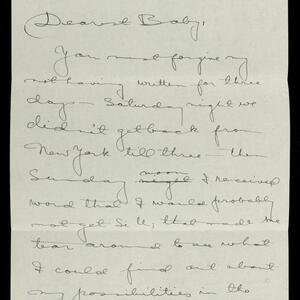 Dearest Baby,
You must forgive my
not having written for three
days — Saturday night we
didn't get back from
New York till three — then
noon
Sunday night I received
word that I would probably
not get S.U., that made me
tear around to see what
I could find out about
my possibilities in the